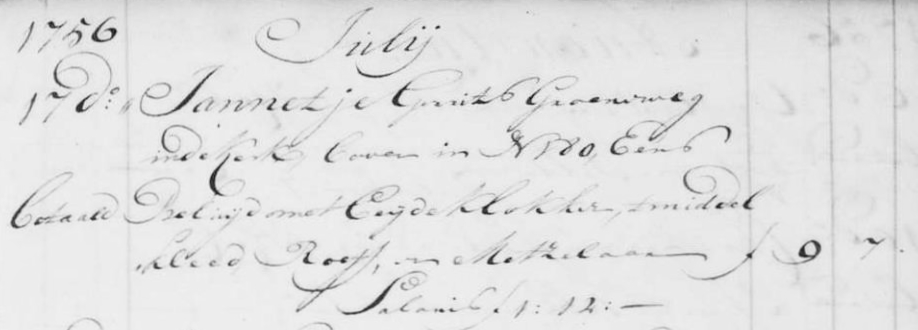 1756 Julij
17 do: Jannetje Gerrits Groeneweg
in de Kerk, boven in No 80, Eens
betaald Beluijd met beyde klokken, middel
kleed Roef, en Metzelaar f 9 7
Salaris f 1: 12: —